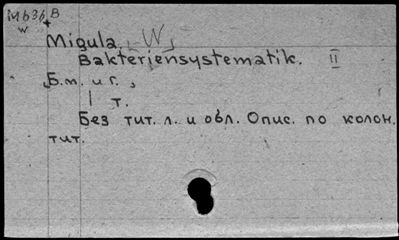 Мб3б В
w
Migula, W,
Bakteriensystematik. II
Б.m. и г.,
1 т.
Без тит. л. и обл. Опис. по колон.
тит.